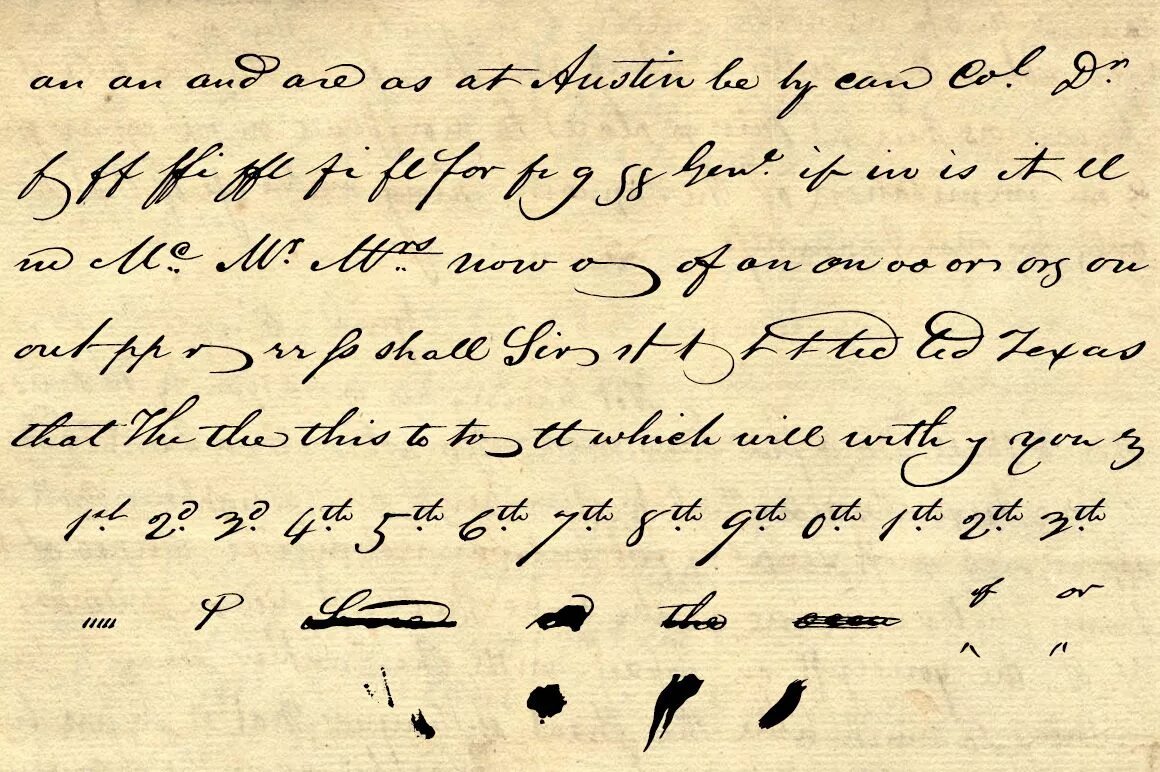 an an and are as at Austin be by can Col. Dr.
f ff ffi ffl fi fl for fr g gg Genl. if in is it ll
m Mc. Mr. Mrs. now o of on on oo or org ou
out pp r rr ss shall Sir st t t t ted ted Texas
that The the this to to tt which will with y you z
1st. 2d. 3d. 4th. 5th. 6th. 7th. 8th. 9th. 0th. 1th. 2th. 3th.
of or
the